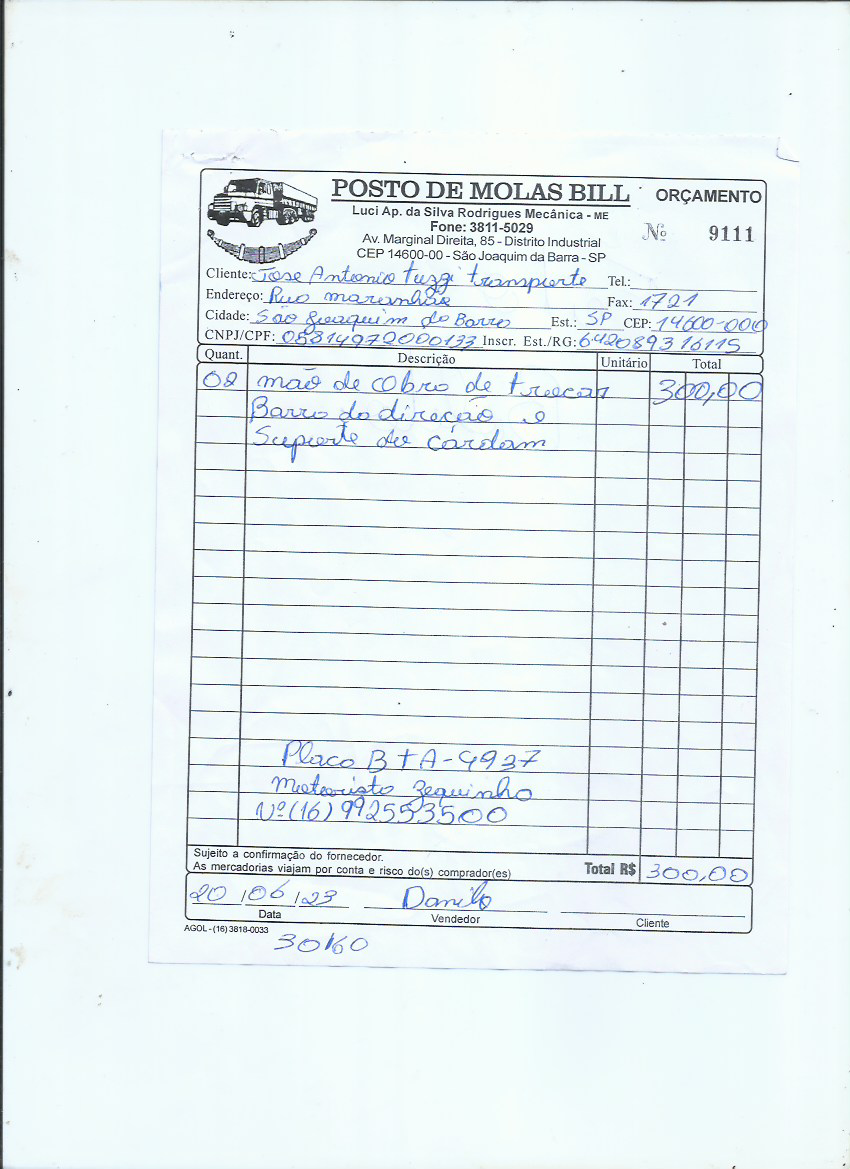 POSTO DE MOLAS BILL ORÇAMENTO
Luci Ap. da Silva Rodrigues Mecânica - ME
Fone: 3811-5029 Nº 9111
Av. Marginal Direita, 85 - Distrito Industrial
CEP 14600-00 - São Joaquim da Barra - SP
Cliente: Jose Antonio Tuzzi transporte Tel.:
Endereço: Rua maranhão Fax: 1721
Cidade: São Joaquim da Barra Est.: SP CEP: 14600-000
CNPJ/CPF: 05814972000133 Inscr. Est./RG: 642089316115
Quant. Descrição Unitário Total
02 mão de Obra de trocar 300,00
Barra da direção e
Suporte do cardam
Placa BTA-9937
Motorista Zequinho
Nº (16) 992553500
Sujeito a confirmação do fornecedor.
As mercadorias viajam por conta e risco do(s) comprador(es) Total R$ 300,00
20/06/23 Danilo
Data Vendedor Cliente
AGOL - (16) 3818-0033
30/60